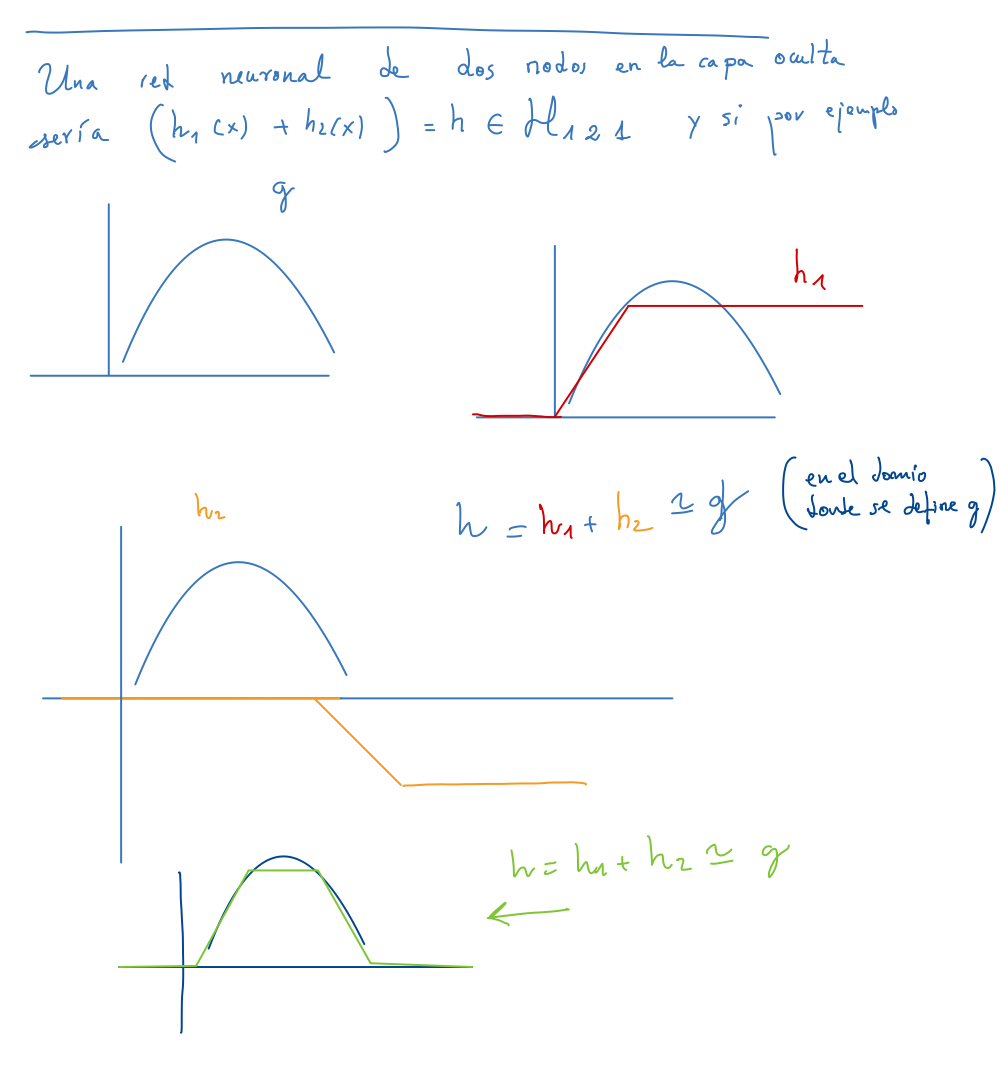 Una red neuronal de dos nodos en la capa oculta
sería (h₁(x) + h₂(x)) = h ∈ ℋ₁₂₁ y si por ejemplo
g
h₁
h₂
h = h₁ + h₂ ≃ g (en el domio
donde se define g)
h = h₁ + h₂ ≃ g